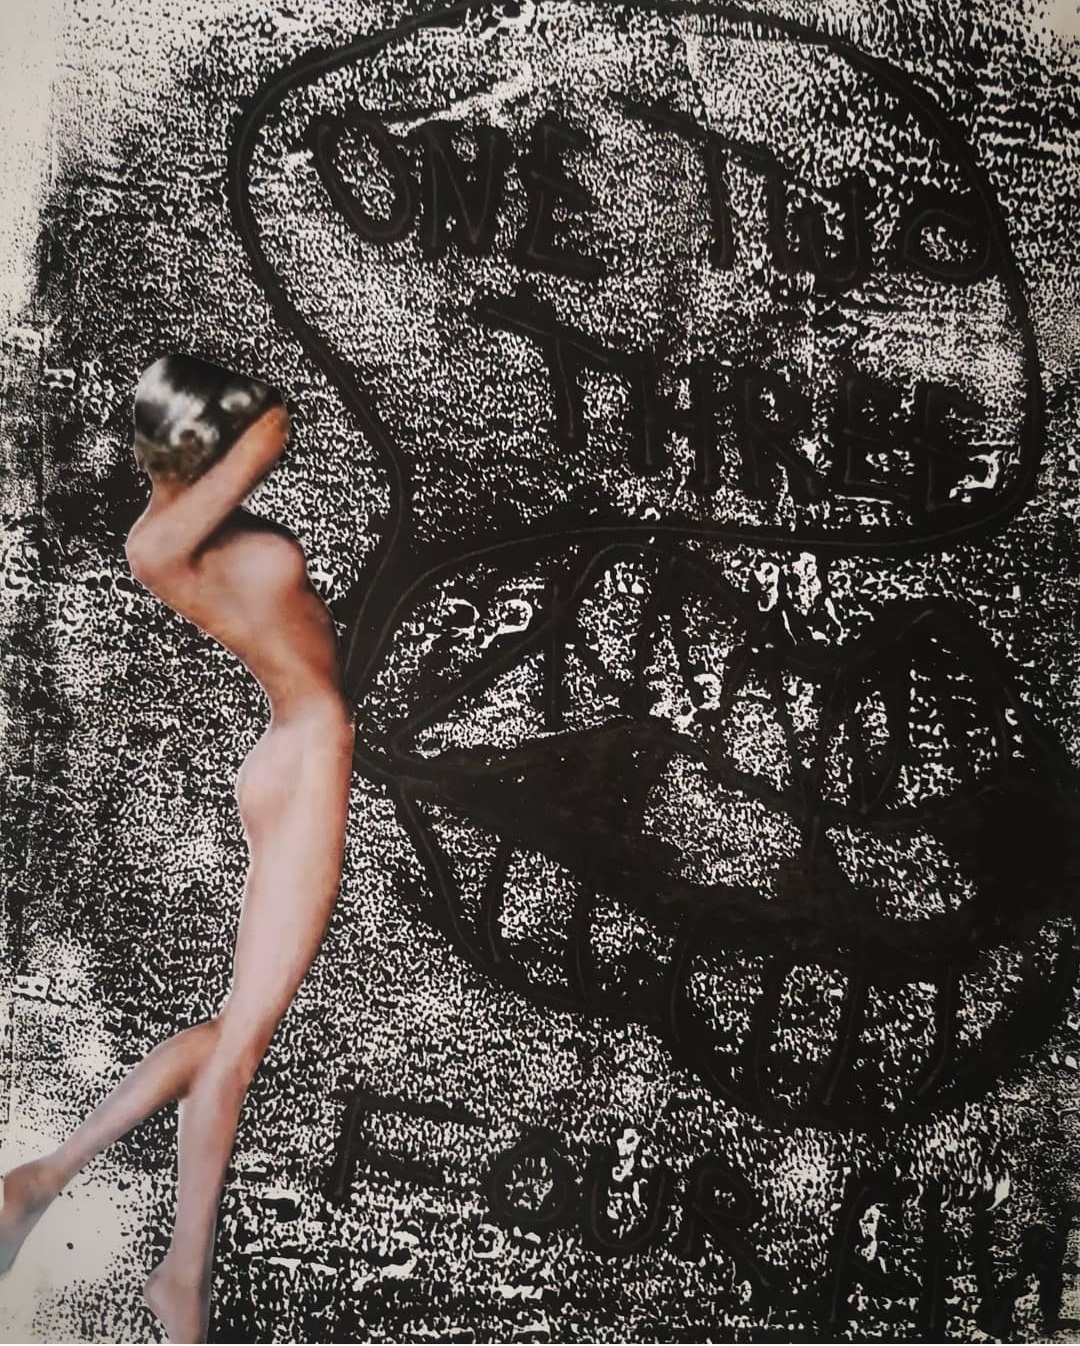 ONE TWO
THREE
FOUR FIVE